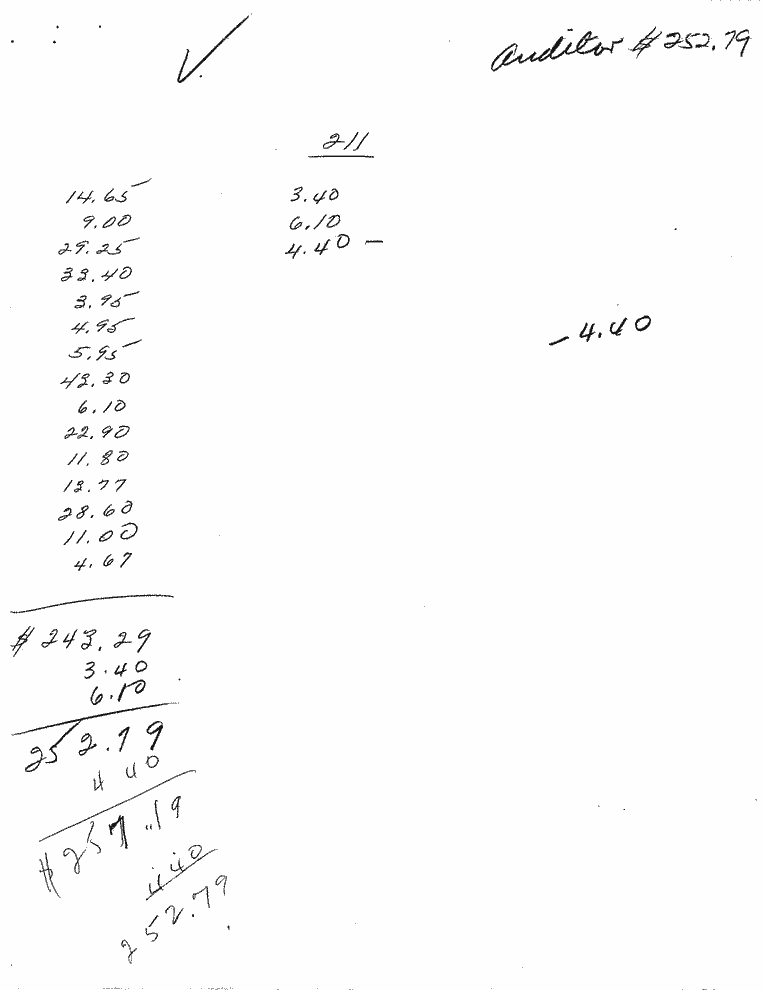 Auditor $252.79
211
14.65
3.40
9.00
6.10
29.25
4.40 —
33.40
3.95
4.95
– 4.40
5.95
43.30
6.10
22.90
11.80
13.77
28.60
11.00
4.67
$ 243.29
3.40
6.10
252.79
4 40
$ 257.19
4.40
252.79